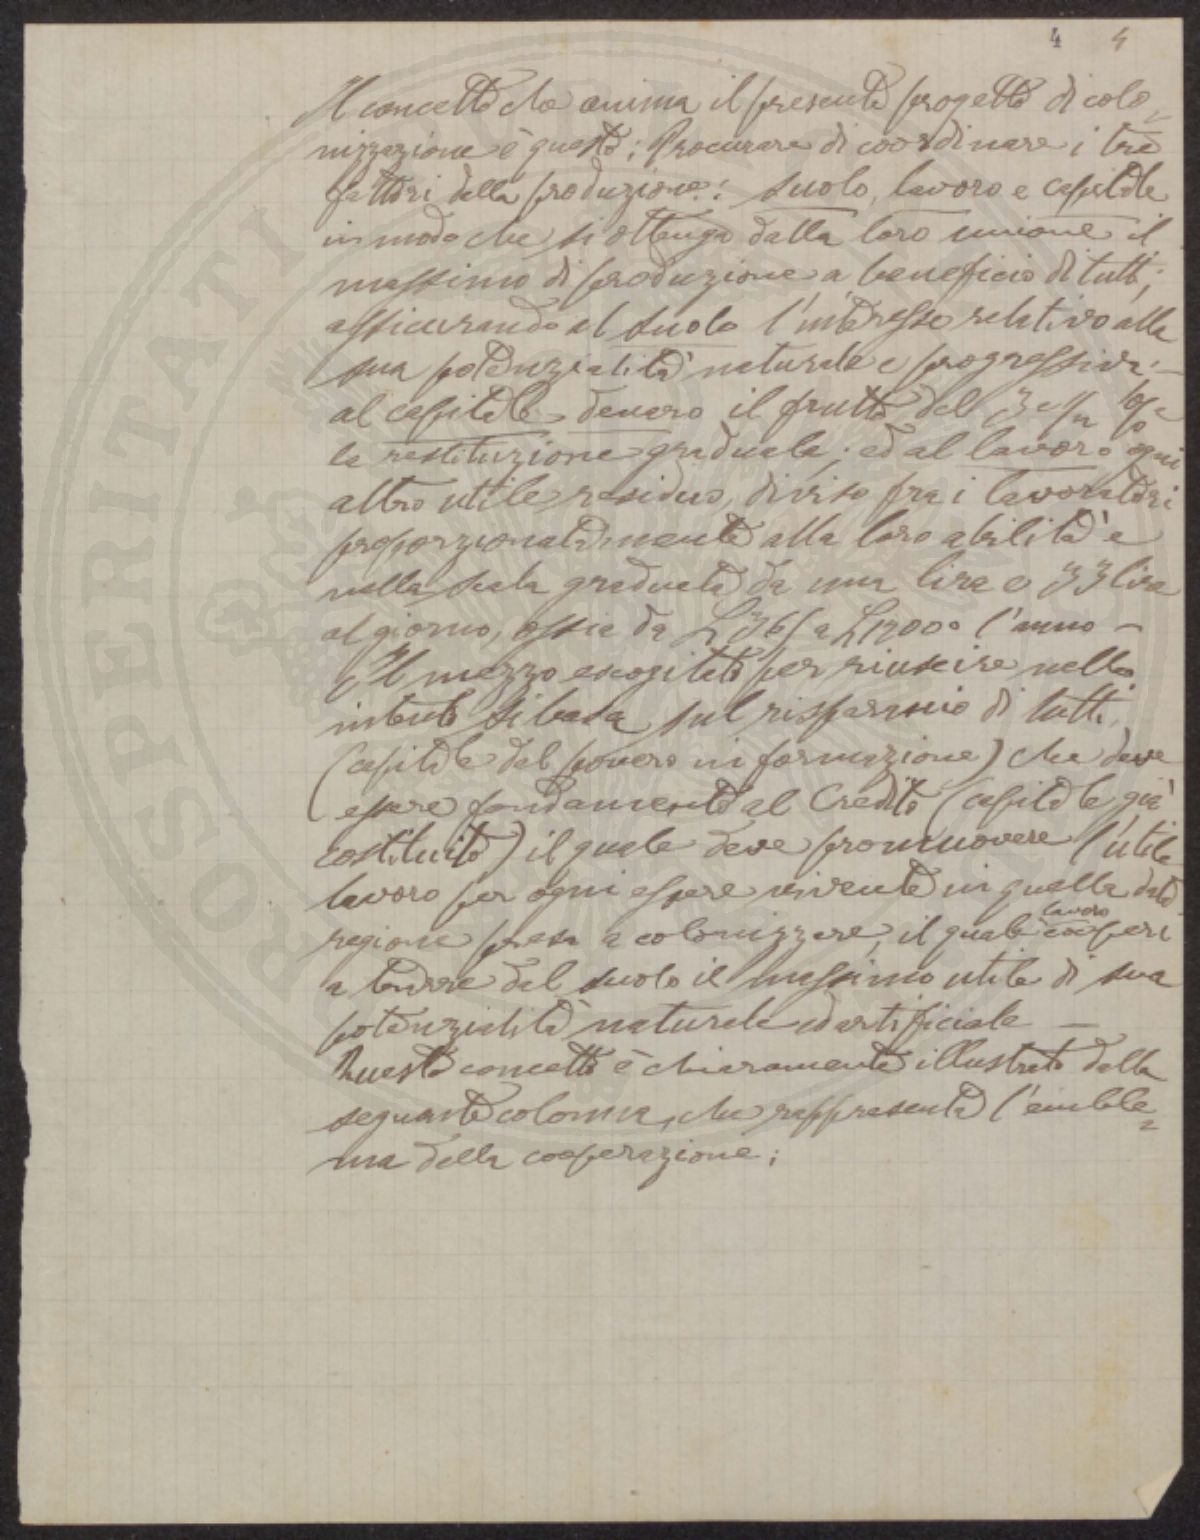 4 4
Il concetto che anima il presente progetto di colo
nizzazione è questo: Procurare di coordinare i tre
fattori della produzione: suolo, lavoro e capitale
in modo che si ottenga dalla loro unione il
massimo di produzione a beneficio di tutti;
assicurando al suolo l'interesse relativo alla
sua potenzialità naturale e progressiva; —
al capitale denaro il frutto del 3 e ½ % e
la restituzione graduale; ed al lavoro ogni
altro utile residuo, diviso fra i lavoratori
proporzionatamente alla loro abilità e
nella scala graduata da una lira a 33 lire
al giorno, ossia da L 365 a L 12000 l'anno —
Il mezzo escogitato per riuscire nello
intento si basa sul risparmio di tutti,
(capitale del povero in formazione) che deve
essere fondamento al Credito (capitale già
costituito) il quale deve promuovere l'utile
lavoro per ogni essere vivente in quella data
regione presa a colonizzare, il quale lavoro cooperi
a trarre dal suolo il massimo utile di sua
potenzialità naturale ed artificiale —
Questo concetto è chiaramente illustrato dalla
seguente colonna, che rappresenta l'emble=
ma della cooperazione;
PROSPERITATI PUBL